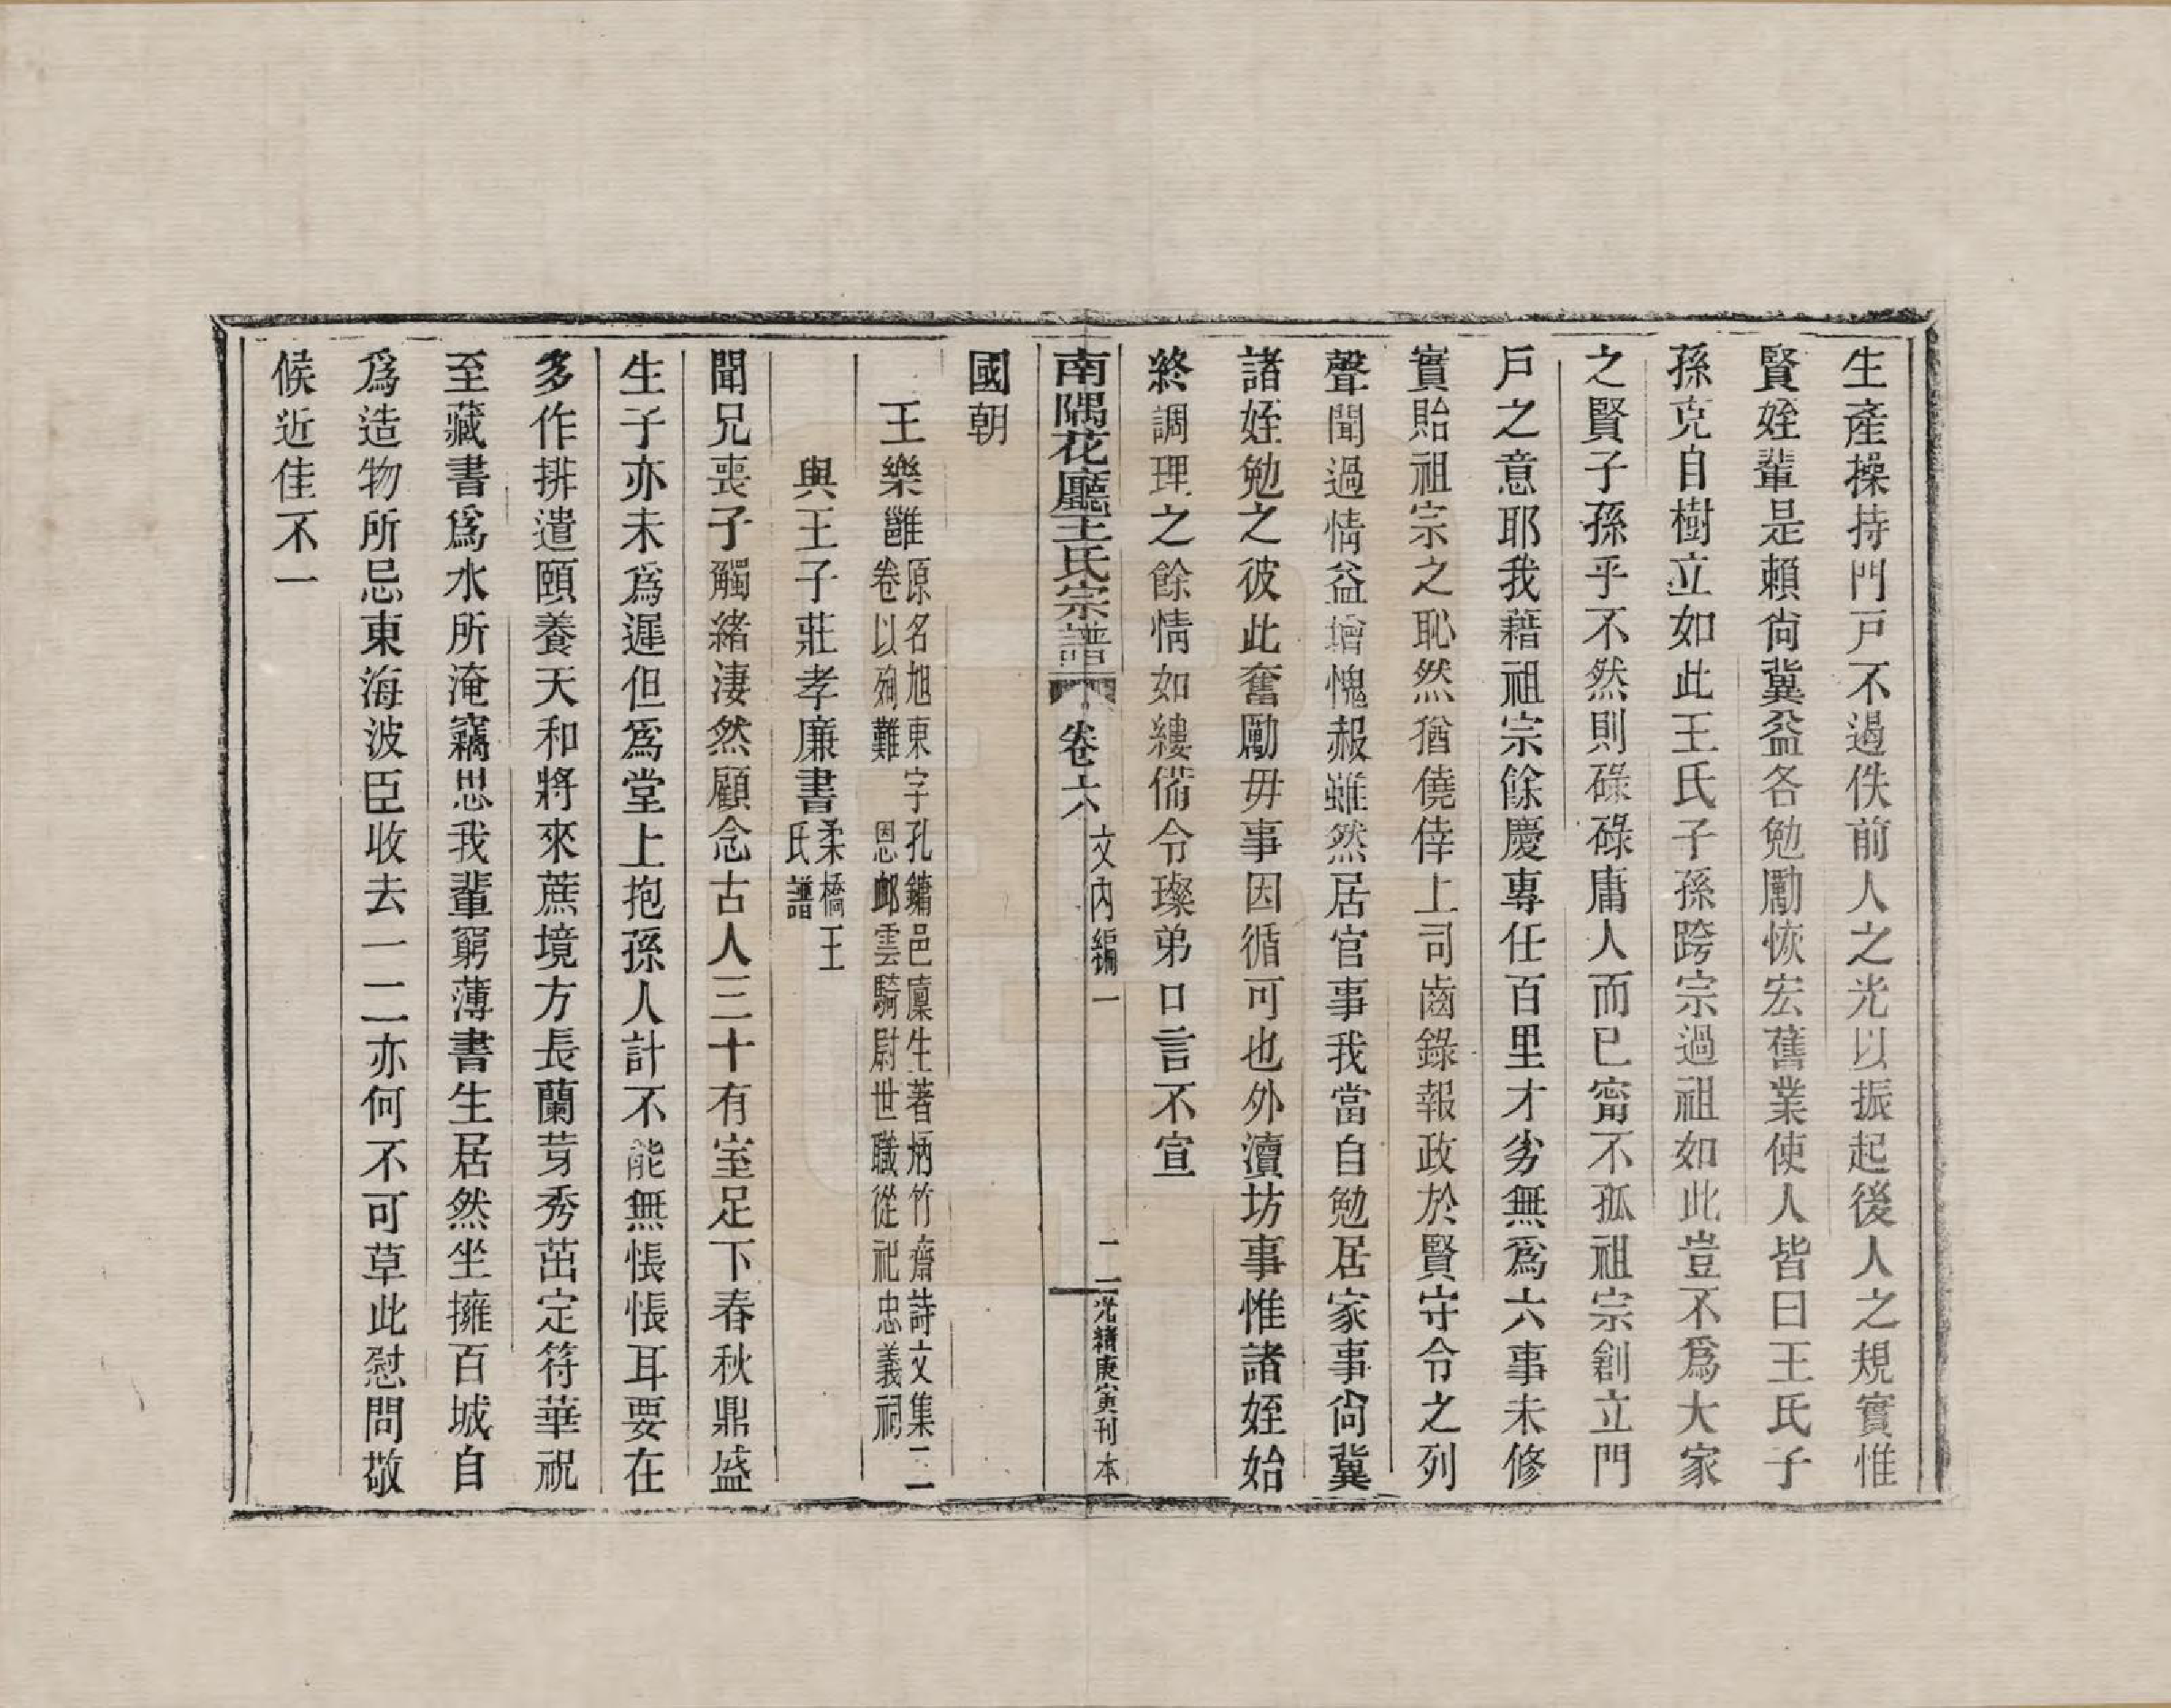 生產操持門戸不過佚前人之光以振起後人之規實惟
賢姪輩是賴尙冀益各勉勵恢宏舊業使人皆曰王氏子
孫克自樹立如此王氏子孫跨宗過祖如此豈不爲大家
之賢子孫乎不然則碌碌庸人而已甯不孤祖宗創立門
戸之意耶我藉祖宗餘慶專任百里才劣無爲六事未修
實貽祖宗之恥然猶僥倖上司齒錄報政於賢守令之列
聲聞過情益增愧赧雖然居官事我當自勉居家事尙冀
諸姪勉之彼此奮勵毋事因循可也外瀆坊事惟諸姪始
終調理之餘情如縷備令璨弟口言不宣
南隅花廳王氏宗譜 卷六 文內編一 二 光緖庚寅刊本
國朝
王樂雝 原名旭東字孔鏞邑廩生著炳竹齋詩文集二
卷以殉難恩䘏雲騎尉世職從祀忠義祠
與王子莊孝廉書 柔橋王
氏譜
聞兄喪子觸緒淒然顧念古人三十有室足下春秋鼎盛
生子亦未爲遲但爲堂上抱孫人計不能無悵悵耳要在
多作排遣頤養天和將來蔗境方長蘭芽秀茁定符華祝
至藏書爲水所淹竊思我輩窮薄書生居然坐擁百城自
爲造物所忌東海波臣收去一二亦何不可草此慰問敬
候近佳不一